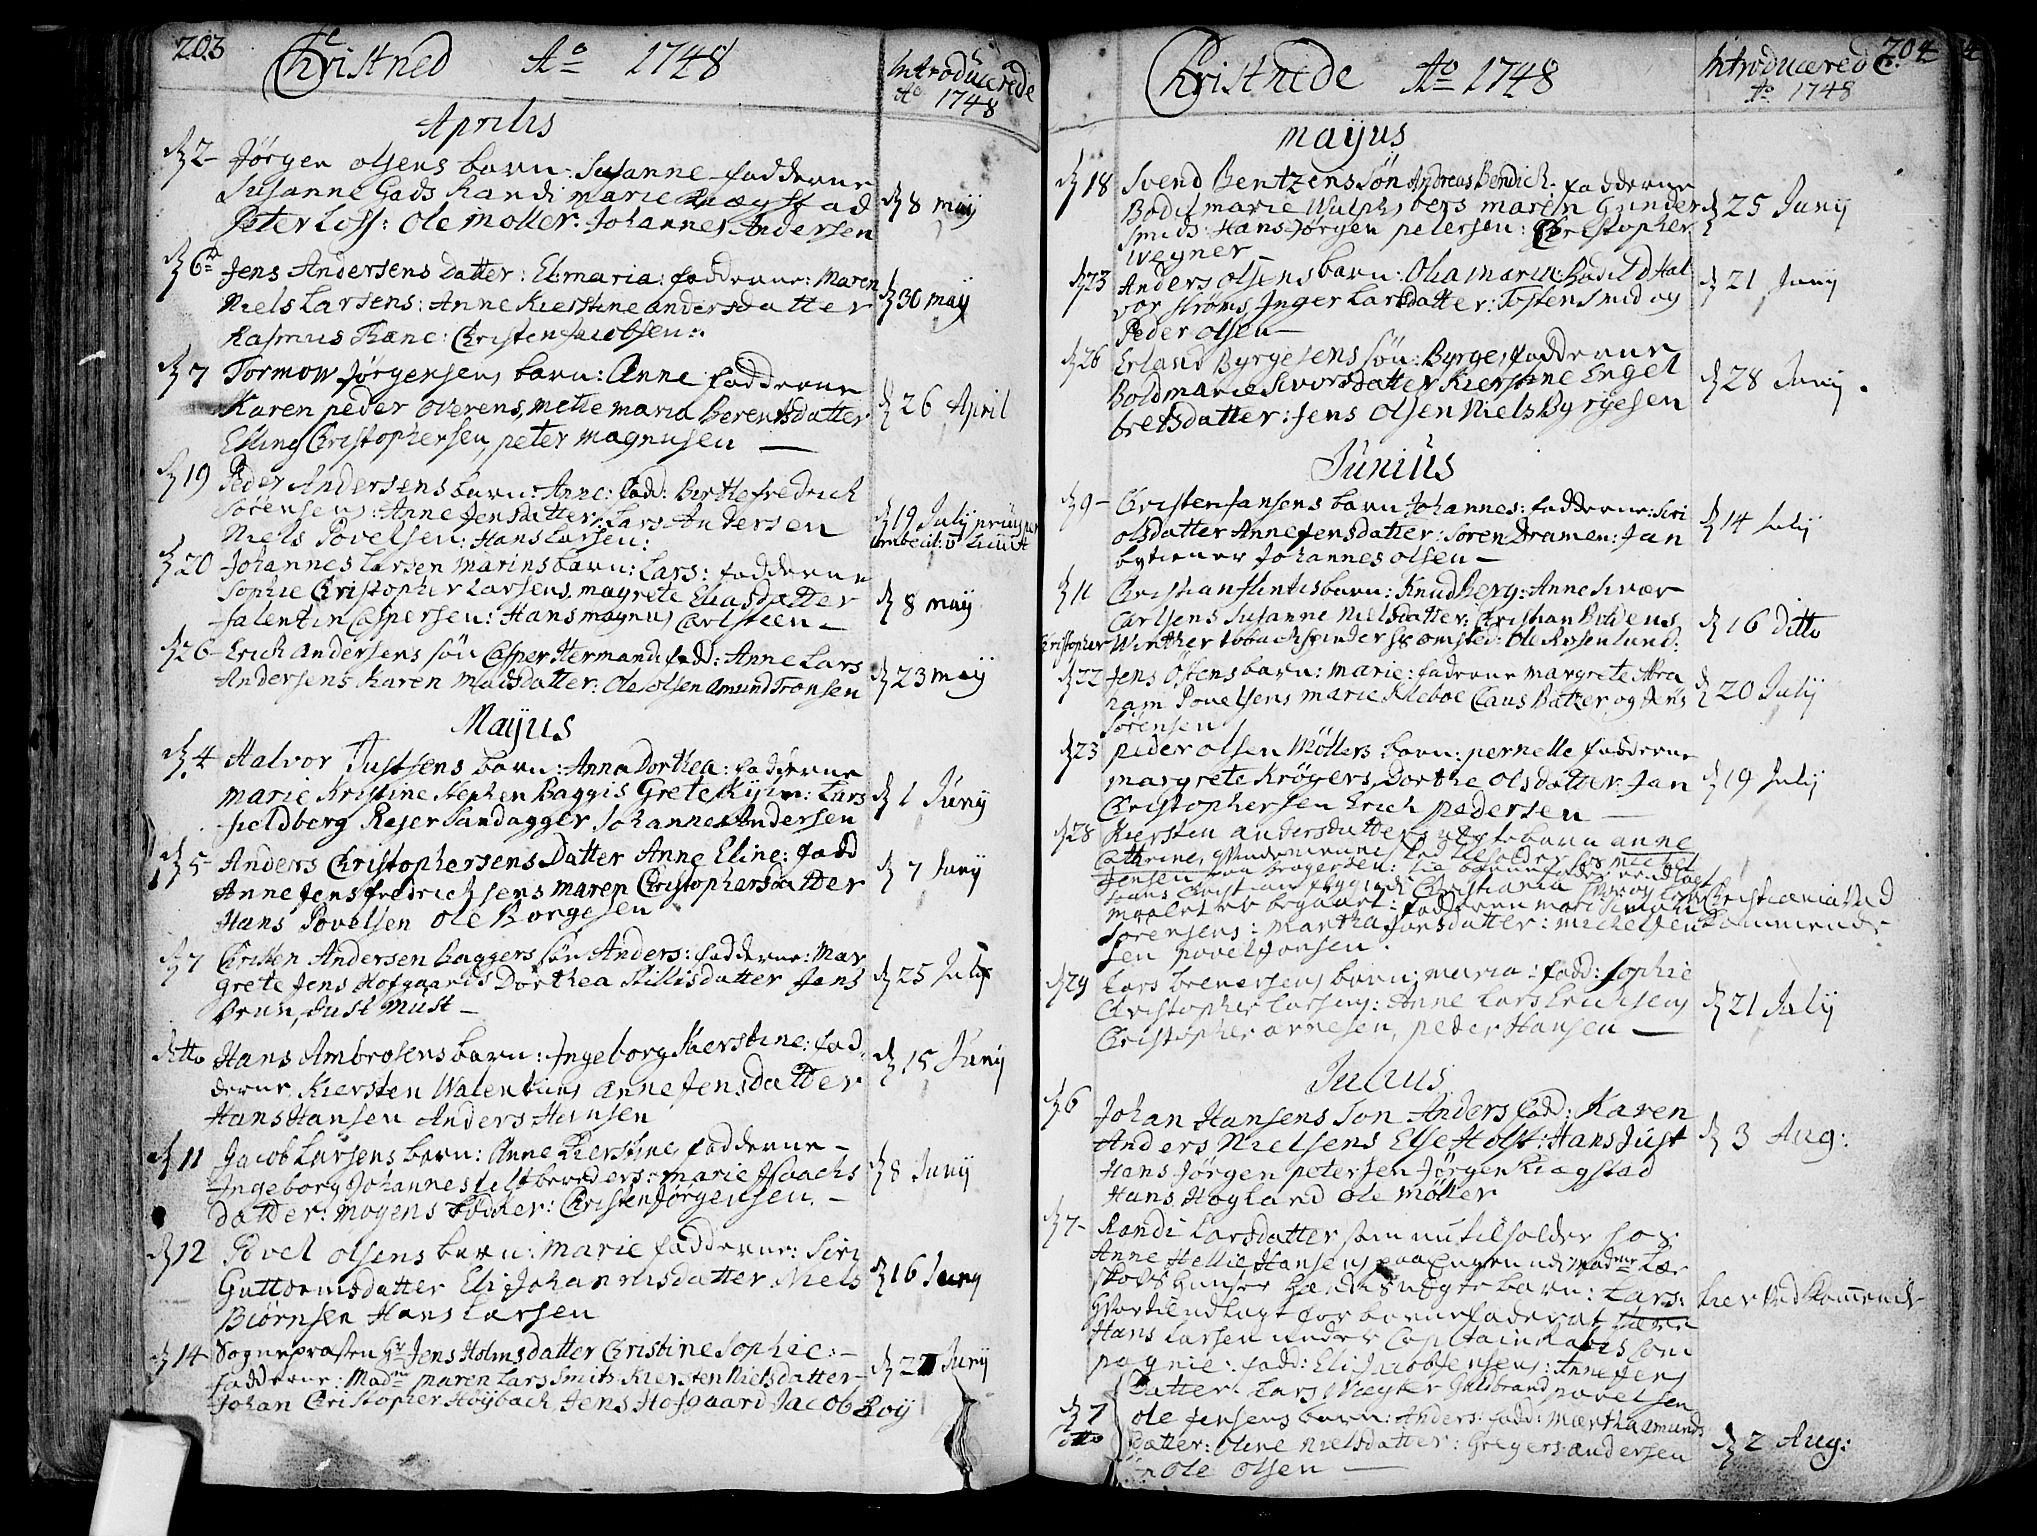 203 Christned Ao 1748
Introducerede
Ao 1748
Aprilis
d 2 - Jørgen olsens barn: Susanne - fadderne
Susanne Gads Randi marie
Peter Loss: Ole Moller: Johannes Andersen
d 8 maij
d 6te Jens Andersens Datter: El: maria: fadderne: Maren
Niels Larsens: Anne Kierstine andersdatter
Rasmus Thane: Christen Jacobsen:
d 30 maij
d 7 Tormow Jørgensens barn: Anne fadderne
Karen peder overens, mette maria Berentsdatter
Elling Christophersen, peter magnusen —
d 26 April
d 19 Peder Andersens barn: Anne: fadd: Birthe fredrich
Sørensens: Anne Jensdatter: Lars Andersen
Niels Povelsen: Hans Larsen:
d 19 Julij
d 20 Johannes Larsen marins barn: Lars: fadderne
Sophie Christopher Larsens, magrete Eliasdatter
falentin Caspersen: Hans magnus Carlsteen —
d 8 maij
d 26 - Erich andersens søn Casper Hermand: fadd: Anne Lars
Andersens Karen Madsdatter: Ole olsen Amund Tronsen
d 23 maij
Maijus
d 4 Halvor Justsens barn: Anna Dorthea: fadderne
marie Kristine stephen Baggis Grete Kijm: Lars
fieldberg Rejer Sandagger Johannes Andersen
d 1 Junij
d 5 - Anders Christophersens Datter Anne Eline: fadd
Anne Jens fredrichsens maren Christophersdatter
Hans Povelsen Ole Borgesen
d 7 Junij
d 7 Christen Andersen Baggers søn Anders: fadderne: Mar
grete Jens Hofgaards Dorthea Nillisdatter Jens
Brun, Just Must —
d 25 Julij
ditto Hans Ambrosens barn: Ingeborg Kierstine: fad
derne Kiersten Walentins Anne Jensdatter
Hans Hansen Anders Hansen
d 15 Junij
d 11 Jacob Larsens barn: Anne Kierstine, fadderne —
Ingeborg Johannes feltbereders: marie Isaachs
datter: mogens Bødker: Christen Jørgensen. —
d 8 Junij
d 12 Povel olsens barn: marie fadderne: Siri
Guttormsdatter Eli Johannisdatter Niels
Biørnsen Hans Larsen
d 16 Junij
d 14 Sognepræsten Hr Jens Holms datter Christine Sophie: —
fadderne: Madme maren Lars Smits Kiersten Nielsdatter —
Johan Christopher Høijbach Jens Hofgaard Jacob Roij
d 27 Junij
204
Christnede Ao 1748
Introducerede
Ao 1748
maijus
d 18 Svend Bentzens søn Andreas Bendich - fadderne
Bodil marie Wulphsbers maren Gunder
Smids: Hans Jørgen petersen: Christopher
Wegner —
d 25 Junij
d 23 Anders olsens barn: Olia maria: Bodild Hal
vor strøms, Inger Larsdatter: Tosten smid og
Peder olsen —
d 21 Junij
d 26 Erland Byrgesens søn: Byrge, fadderne
Bold marie Siversdatter Kierstine Engel
bretsdatter: Jens Olsen Niels Byrgesen
d 28 Junij.
Junius
d 9 - Christen Jansens barn Johannes: fadderne: Siri
olsdatter Anne Jensdatter: Soren Dramen: Jan
bytiener Johannes olsen —
d 14 Julij
d 11 Christian flintis barn: Knud Berg: Anne Sivær
Carlsens Susanne Nielsdatter: Christian Boldens
Christopher Winther tobachspinder Ole Rosenlund:
d 16 ditto
d 22 Jens Ostens barn: marie: fadderne margrete Abra
ham Povelsens marie Kleboe Claus Batzer og Jens
Sørensen
d 20 Julij
d 23 peder olsen Møllers barn: pernelle fadderne
margrete Krøgers, Dorthe Olsdatter: Jan
Christophersen Erich pedersen —
d 19 Julij
d 28 Kiersten andersdatters uægte barn anne
Cathrine,
Jensen paa Bragernes: barnefader
Hans Christian Christiania
fadderne mari simon
Sorensens: Martha Jonsdatter: Michel Jen
sen povel Jonsen.
Christiania stad
kommende
d 29 Lars brenersens barn: maria: fadd: sophie
Christopher Larsens: Anne Lars Erichsens
Christopher arnesen, peder Hansen —
d 21 Julij
Julius
d 6 Johan Hansens Son Anders fadd: Karen
Anders Nielsens Else Holst: Hans Just
Hans Jørgen petersen Jørgen Kragstad
Hans Hogland Ole Møller
d 3 Aug:
d 7 - Randi Larsdatter som nu tilholder hos
Anne Hellie Hansens paa Engen udi Madme
Hunsets hendes uægte barn: Lars:
Hvortil udlagt for barnefader at være
Hans Larsen under Captain Com
pagnie: fadd: Eli Jacob Jensens: Anne Jens
datter. Lars Guldbrand povelsen
her ved kommende
d 7 Ole Jensens barn: Anders: fadd: Martha amunds
ditto datter: Oline Nielsdatter: Gregers andersen
Ole olsen —
d 2 Aug: